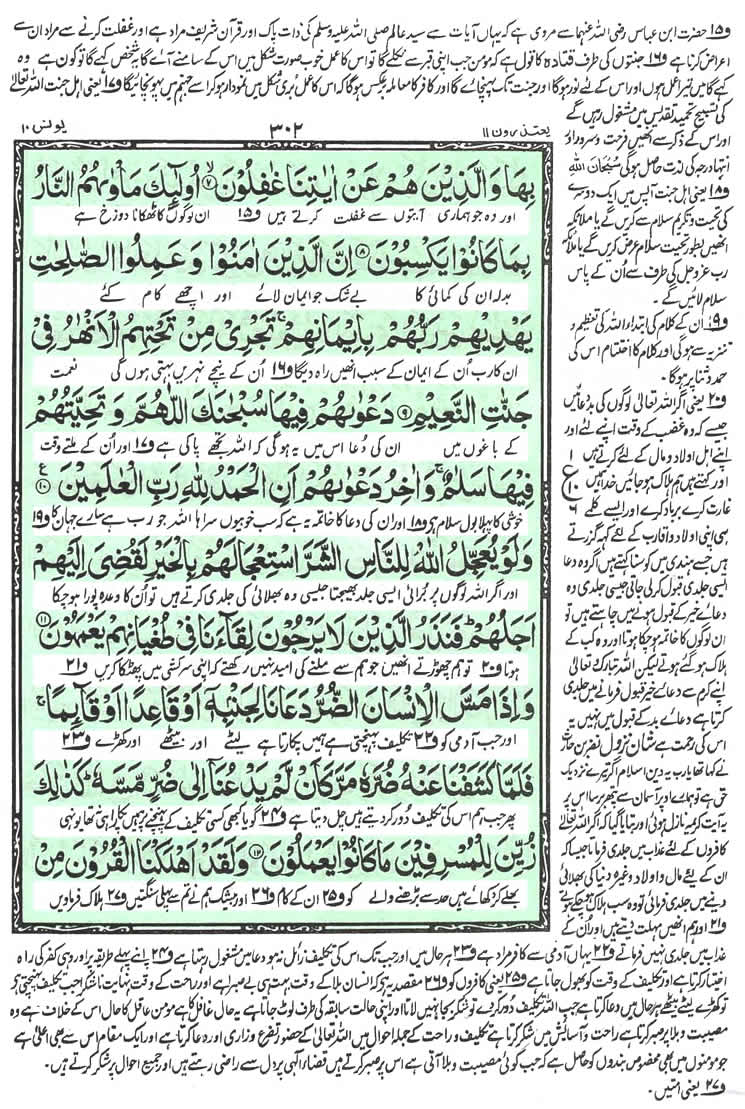 و۱۵ حضرت ابن عباس رضی اللہ عنہما سے مروی ہے کہ یہاں آیات سے سید عالم صلی اللہ علیہ وسلم کی ذات پاک اور قرآن شریف مراد ہے اور غفلت کرنے سے مراد ان سے
اعراض کرنا ہے و۱۶ جنتوں کی طرف قتادہ کا قول ہے کہ مومن جب اپنی قبر سے نکلے گا تو اس کا عمل خوب صورت شکل میں اس کے سامنے آئے گا یہ شخص کہے گا تو کون ہے وہ
کہے گا میں تیرا عمل ہوں اور اس کے لئے نور ہوگا اور جنت تک پہنچائے گا اور کافر کا معاملہ برعکس ہوگا کہ اس کا عمل بری شکل میں نمودار ہوکر اسے جہنم میں پہونچائیگا و۱۷ یعنی اہل جنت اللہ تعالیٰ
کی تسبیح تحمید تقدیس میں مشغول رہیں گے
اور اس کے ذکر سے انھیں فرحت و سرور اور
انتہا درجہ کی لذت حاصل ہوگی سُبْحَانَ اللہِ
و۱۸ یعنی اہل جنت آپس میں ایک دوسرے
کی تحیت و تکریم سلام سے کریں گے یا ملائکہ
انھیں بطور تحیت سلام عرض کریں گے یا ملائکہ
رب عزوجل کی طرف سے اُن کے پاس
سلام لائیں گے ۔
و۱۹ اُن کے کلام کی ابتدا اللہ کی تعظیم و
تنزیہ سے ہوگی اور کلام کا اختتام اس کی
حمد و ثنا پر ہوگا ۔
و۲۰ یعنی اگر اللہ تعالیٰ لوگوں کی بددعائیں
جیسے کہ وہ غضب کے وقت اپنے لئے اور
اپنے اہل و اولاد و مال کے لئے کرتے ہیں
اور کہتے ہیں ہم ہلاک ہوجائیں خدا ہمیں
غارت کرے برباد کرے اور ایسے کلمے
ہی اپنی اولاد و اقارب کے لئے کہہ گزرتے
ہیں جسے ہندی میں کوسنا کہتے ہیں اگر وہ دعا
ایسی جلدی قبول کرلی جاتی جیسی جلدی وہ
دعائے خیر کے قبول ہونے میں چاہتے ہیں تو
ان لوگوں کا خاتمہ ہوچکا ہوتا اور وہ کب کے
ہلاک ہوگئے ہوتے لیکن اللہ تبارک تعالیٰ
اپنے کرم سے دعائے خیر قبول فرمانے میں جلدی
کرتا ہے دعائے بد کے قبول میں نہیں یہ
اس کی رحمت ہے شان نزول نضر بن حارث
نے کہا تھا یارب یہ دین اسلام اگر تیرے نزدیک
حق ہے تو ہمارے اوپر آسمان سے پتھر برسا اس پر
یہ آیت کریمہ نازل ہوئی اور بتایا گیا کہ اگر اللہ تعالیٰ
کافروں کے لئے عذاب میں جلدی فرماتا جیسا کہ
ان کے لئے مال و اولاد وغیرہ دنیا کی بھلائی
دینے میں جلدی فرمائی تو وہ سب ہلاک ہوچکے ہوتے
و۲۱ اور ہم انھیں مہلت دیتے ہیں اور اُن کے
یعتذرون ۱۱
۳۰۲
یونس ۱۰
بِهَا وَالَّذِيْنَ هُمْ عَنْ اٰيٰتِنَا غٰفِلُوْنَ ۙ۷ اُولٰٓئِكَ مَاْوٰىهُمُ النَّارُ
اور وہ جو ہماری آیتوں سے غفلت کرتے ہیں و۱۵ ان لوگوں کا ٹھکانا دوزخ ہے
بِمَا كَانُوْا يَكْسِبُوْنَ ۸ اِنَّ الَّذِيْنَ اٰمَنُوْا وَ عَمِلُوا الصّٰلِحٰتِ
بدلہ ان کی کمائی کا بے شک جو ایمان لائے اور اچھے کام کئے
يَهْدِيْهِمْ رَبُّهُمْ بِاِيْمَانِهِمْ ۚ تَجْرِيْ مِنْ تَحْتِهِمُ الْاَنْهٰرُ فِيْ
ان کا رب اُن کے ایمان کے سبب انھیں راہ دیگا و۱۶ اُن کے نیچے نہریں بہتی ہوں گی نعمت
جَنّٰتِ النَّعِيْمِ ۹ دَعْوٰىهُمْ فِيْهَا سُبْحٰنَكَ اللّٰهُمَّ وَ تَحِيَّتُهُمْ
کے باغوں میں ان کی دعا اس میں یہ ہوگی کہ اللہ تجھے پاکی ہے و۱۷ اور اُن کے ملتے وقت
فِيْهَا سَلٰمٌ ۚ وَاٰخِرُ دَعْوٰىهُمْ اَنِ الْحَمْدُ لِلّٰهِ رَبِّ الْعٰلَمِيْنَ ۱۰
ع ۱ ۱۰ ۶
خوشی کا پہلا بول سلام ہے و۱۸ اور ان کی دعا کا خاتمہ یہ ہے کہ سب خوبیوں سراہا اللہ جو رب ہے سارے جہان کا و۱۹
وَلَوْ يُعَجِّلُ اللّٰهُ لِلنَّاسِ الشَّرَّ اسْتِعْجَالَهُمْ بِالْخَيْرِ لَقُضِيَ اِلَيْهِمْ
اور اگر اللہ لوگوں پر بُرائی ایسی جلد بھیجتا جیسی وہ بھلائی کی جلدی کرتے ہیں تو اُن کا وعدہ پورا ہوچکا
اَجَلُهُمْ ؕ فَنَذَرُ الَّذِيْنَ لَا يَرْجُوْنَ لِقَآءَنَا فِيْ طُغْيَانِهِمْ يَعْمَهُوْنَ ۱۱
ہوتا و۲۰ تو ہم چھوڑتے انھیں جو ہم سے ملنے کی امید نہیں رکھتے کہ اپنی سرکشی میں بھٹکا کریں و۲۱
وَاِذَا مَسَّ الْاِنْسَانَ الضُّرُّ دَعَانَا لِجَنْۢبِهٖٓ اَوْ قَاعِدًا اَوْ قَآئِمًا ۚ
اور جب آدمی کو و۲۲ تکلیف پہنچتی ہے ہمیں پکارتا ہے لیٹے اور بیٹھے اور کھڑے و۲۳
فَلَمَّا كَشَفْنَا عَنْهُ ضُرَّهٗ مَرَّ كَاَنْ لَّمْ يَدْعُنَآ اِلٰى ضُرٍّ مَّسَّهٗ ؕ كَذٰلِكَ
پھر جب ہم اس کی تکلیف دُور کردیتے ہیں چل دیتا ہے و۲۴ گویا کبھی کسی تکلیف کے پہنچنے پر ہمیں پکارا ہی نہ تھا یونہی
زُيِّنَ لِلْمُسْرِفِيْنَ مَا كَانُوْا يَعْمَلُوْنَ ۱۲ وَلَقَدْ اَهْلَكْنَا الْقُرُوْنَ مِنْ
بھلے کر دکھائے ہیں حد سے بڑھنے والے کو و۲۵ ان کے کام و۲۶ اور بیشک ہم نے تم سے پہلی سنگتیں و۲۷ ہلاک فرمادیں
عذاب میں جلدی نہیں فرماتے و۲۲ یہاں آدمی سے کافر مراد ہے و۲۳ ہر حال میں اور جب تک اس کی تکلیف زائل نہ ہو دعا میں مشغول رہتا ہے و۲۴ اپنے پہلے طریقہ پر اور وہی کفر کی راہ
اختیار کرتا ہے اور تکلیف کے وقت کو بھول جاتا ہے و۲۵ یعنی کافروں کو و۲۶ مقصد یہ ہے کہ انسان بلا کے وقت بہت ہی بے صبرا ہے اور راحت کے وقت نہایت ناشکرا جب تکلیف پہنچتی ہے
تو کھڑے لیٹے بیٹھے ہر حال میں دعا کرتا ہے جب اللہ تکلیف دُور کردے تو شکر بجا نہیں لاتا اور اپنی حالت سابقہ کی طرف لوٹ جاتا ہے یہ حال غافل کا ہے مومن عاقل کا حال اس کے خلاف ہے وہ
مصیبت و بلا پر صبر کرتا ہے راحت و آسائش میں شکر کرتا ہے تکلیف و راحت کے جملہ احوال میں اللہ تعالیٰ کے حضور تضرع و زاری اور دعا کرتا ہے اور ایک مقام اس سے بھی اعلیٰ ہے
جو مومنوں میں بھی مخصوص بندوں کو حاصل ہے کہ جب کوئی مصیبت و بلا آتی ہے اس پر صبر کرتے ہیں قضاء الٰہی پر دل سے راضی رہتے ہیں اور جمیع احوال پر شکر کرتے ہیں۔
و۲۷ یعنی امتیں ۔